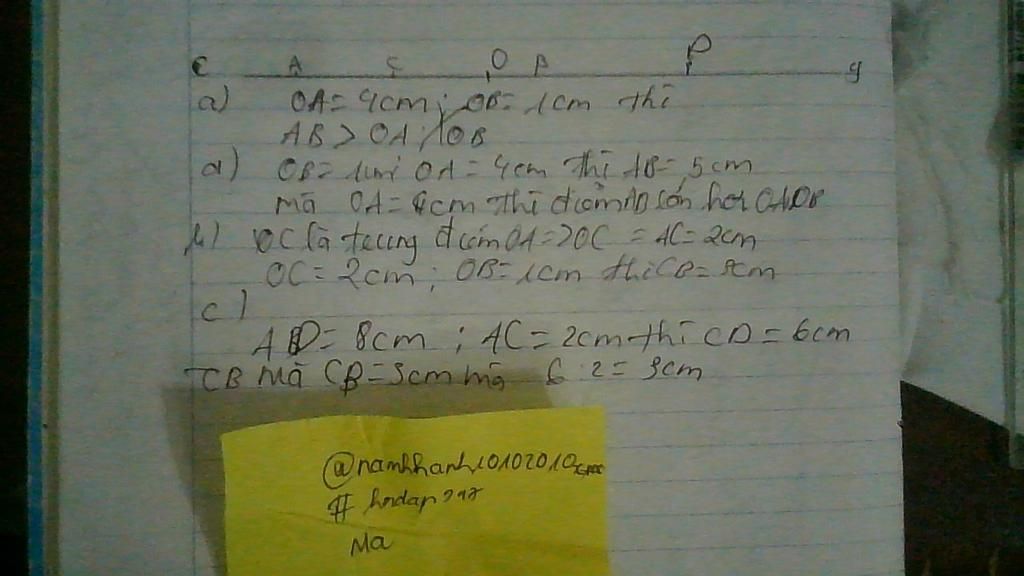 c A C O B P y
a) OA = 4cm ; OB = 1cm thì
AB > OA ; OB
a) OB = 1cm; OA = 4cm thì AB = 5cm
mà OA = 4cm thì
b) OC là trung điểm OA => OC = AC = 2cm
OC = 2cm ; OB = 1cm thì CB = 3cm
c)
AD = 8cm ; AC = 2cm thì CD = 6cm
CB mà CB = 3cm mà 6 : 2 = 3cm
@namkhanh10102010
# hoidap247
Ma